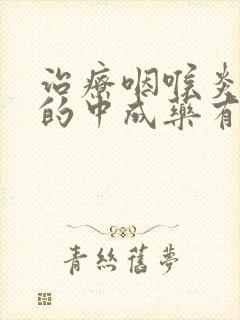 治療咽喉炎
的中成藥有
青絲舊夢